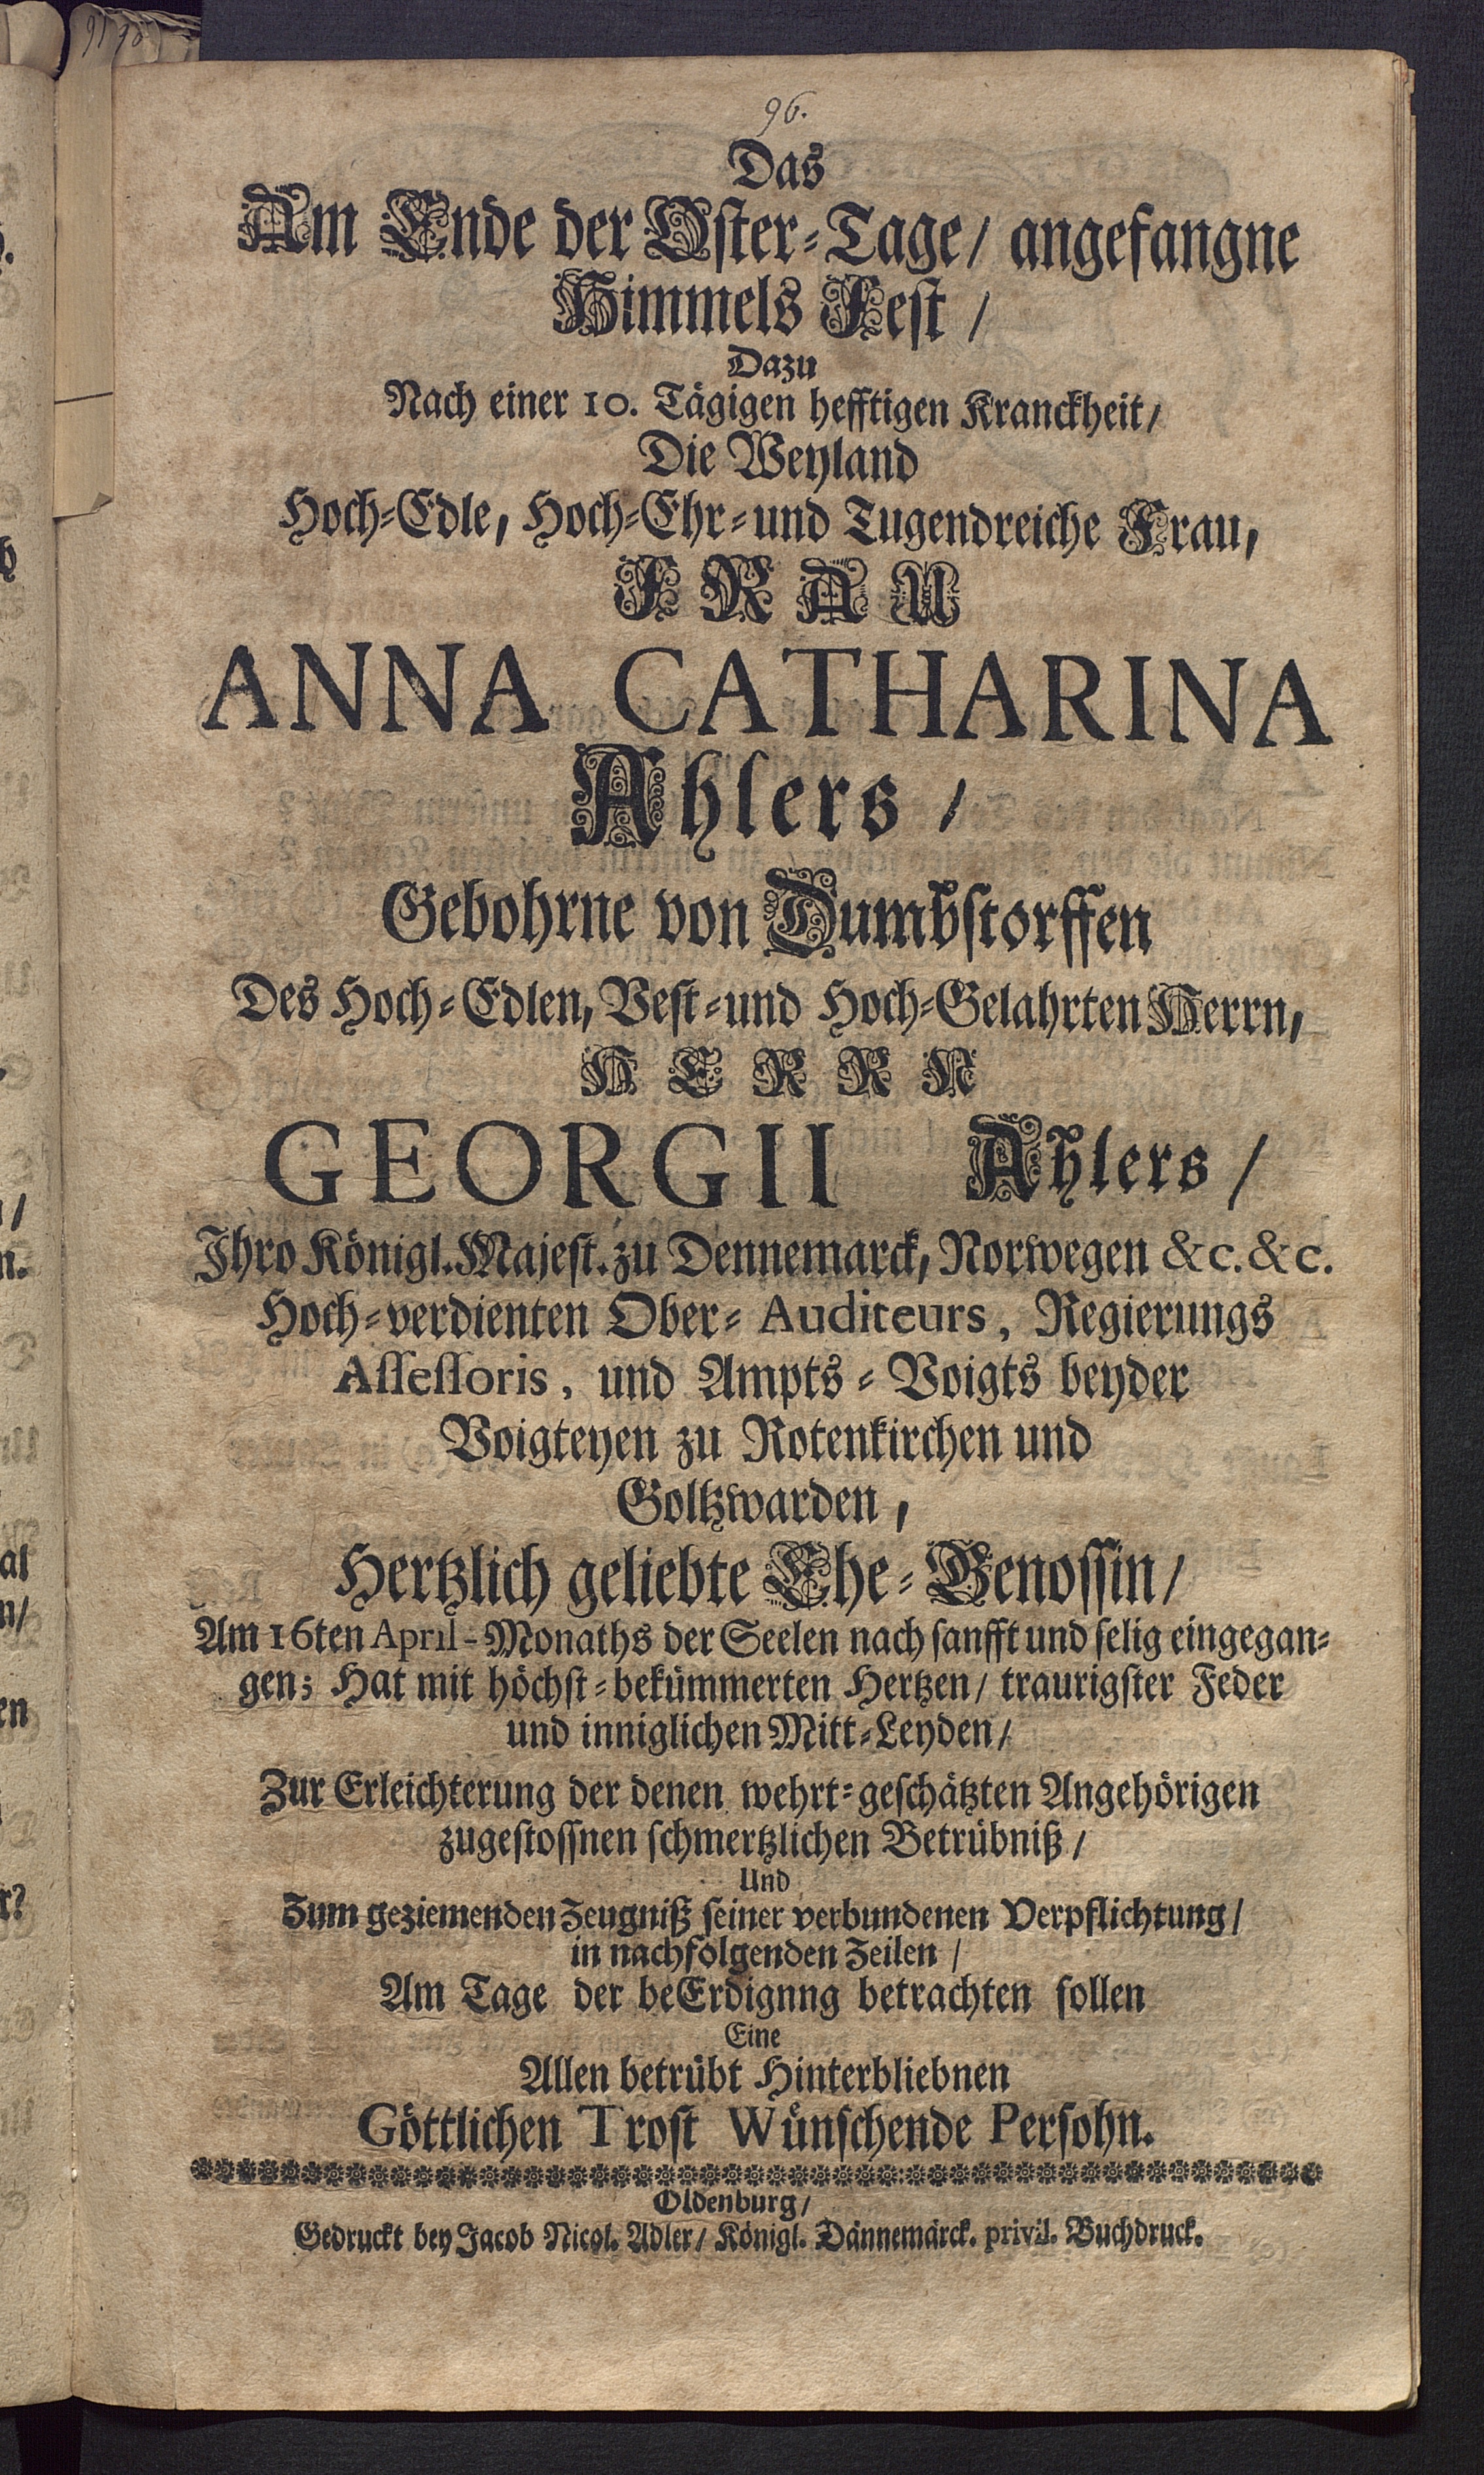 96.
Das
Am Ende der Oster-Tage/ angefangne
Himmels Fest /
Dazu
Nach einer 10. Tägigen hefftigen Kranckheit/
Die Weyland
Hoch-Edle, Hoch-Ehr-und Tugendreiche Frau,
FRAU
ANNA CATHARINA
Ahlers /
Gebohrne von Dumbstorffen
Des Hoch-Edlen, Vest-und Hoch-Gelahrten Herrn,
HERRN
GEORGII Ahlers /
Ihro Königl. Majest. zu Dennemarck, Norwegen &c. &c.
Hoch-verdienten Ober-Auditeurs, Regierungs
Assessoris, und Ampts-Voigts beyder
Voigteyen zu Rotenkirchen und
Goltzwarden,
Hertzlich geliebte Ehe-Genossin/
Am 16ten April-Monaths der Seelen nach sanfft und selig eingegan-
gen; Hat mit höchst-bekümmerten Hertzen/ traurigster Feder
und inniglichen Mitt-Leyden/
Zur Erleichterung der denen wehrt-geschätzten Angehörigen
zugestossnen schmertzlichen Betrübniß/
Und
Zum geziemenden Zeugniß seiner verbundenen Verpflichtung/
in nachfolgenden Zeilen /
Am Tage der beErdignng betrachten sollen
Eine
Allen betrübt Hinterbliebnen
Göttlichen Trost Wünschende Persohn.
Oldenburg/
Gedruckt bey Jacob Nicol. Adler/ Königl. Dännemärck. privil. Buchdruck.